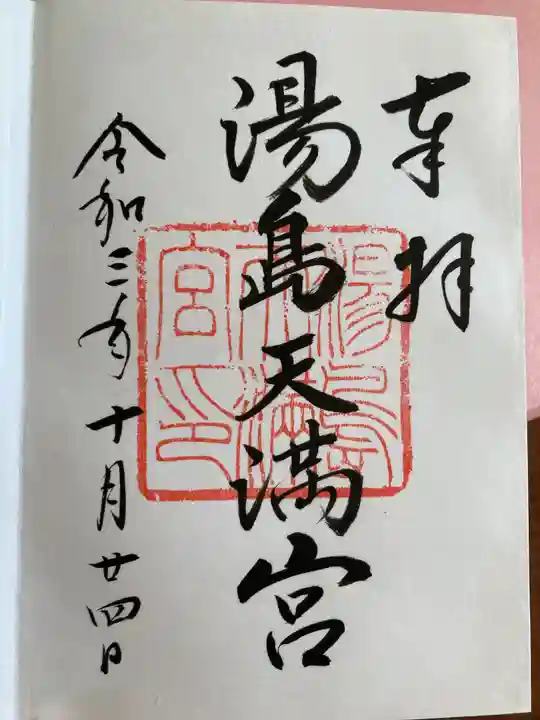 奉拝
湯島天満宮
令和三年十月廿四日
湯島天満宮印